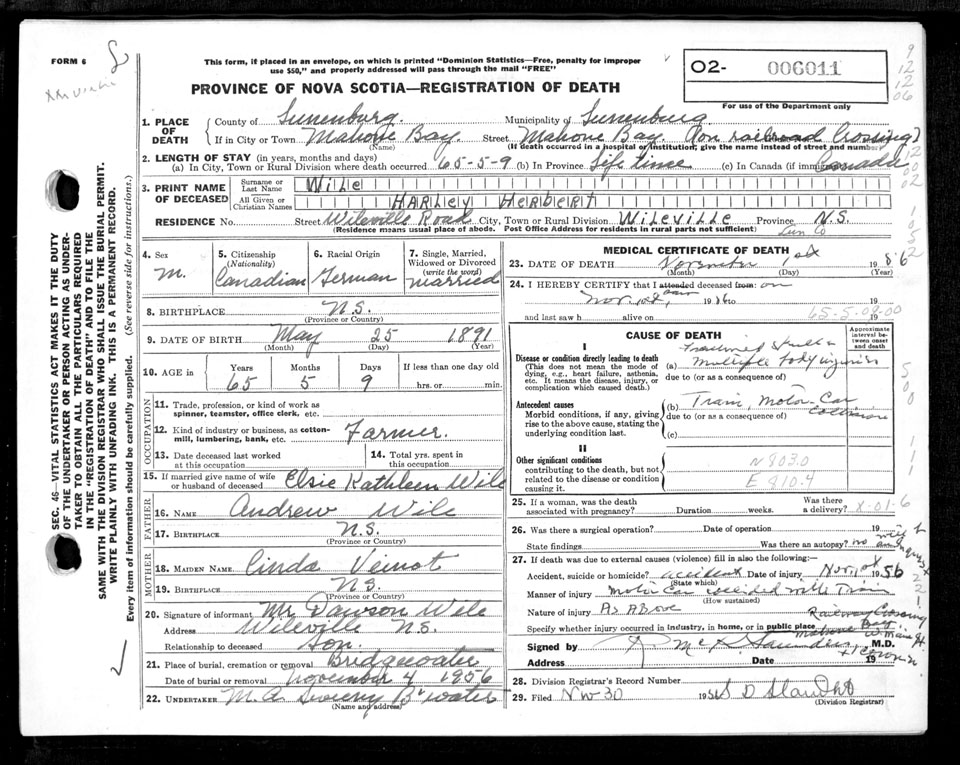 FORM 6
This form, if placed in an envelope, on which is printed "Dominion Statistics—Free, penalty for improper
use $50," and properly addressed will pass through the mail "FREE"
O2- 006011
PROVINCE OF NOVA SCOTIA—REGISTRATION OF DEATH
For use of the Department only
1. PLACE OF DEATH
County of Lunenburg Municipality of Lunenburg
If in City or Town Mahone Bay Street Mahone Bay (on railroad Crossing)
(Name) (If death occurred in a hospital or institution, give the name instead of street and number)
2. LENGTH OF STAY (in years, months and days)
(a) In City, Town or Rural Division where death occurred 65-5-9 (b) In Province Life time (c) In Canada (if immigrant) Canada
3. PRINT NAME OF DECEASED
Surname or Last Name Wile
All Given or Christian Names HARLEY HERBERT
RESIDENCE No. Street Wileville Road City, Town or Rural Division Wileville Province N.S.
(Residence means usual place of abode. Post Office Address for residents in rural parts not sufficient) Lun Co
4. Sex M.
5. Citizenship (Nationality) Canadian
6. Racial Origin German
7. Single, Married, Widowed or Divorced (write the word) married
8. BIRTHPLACE N.S.
(Province or Country)
9. DATE OF BIRTH May 25 1891
(Month) (Day) (Year)
10. AGE in Years 65 Months 5 Days 9 If less than one day old hrs. or min.
OCCUPATION
11. Trade, profession, or kind of work as
spinner, teamster, office clerk, etc.
12. Kind of industry or business, as cotton-
mill, lumbering, bank, etc. Farmer.
13. Date deceased last worked
at this occupation
14. Total yrs. spent in
this occupation
15. If married give name of wife
or husband of deceased Elsie Kathleen Wile
FATHER
16. NAME Andrew Wile
17. BIRTHPLACE N.S.
(Province or Country)
MOTHER
18. MAIDEN NAME Cinda Veinot
19. BIRTHPLACE N.S.
(Province or Country)
20. Signature of informant Mr. Dawson Wile
Address Wileville N.S.
Relationship to deceased Son.
21. Place of burial, cremation or removal Bridgewater
Date of burial or removal November 4 1956
22. UNDERTAKER M. A. Sweeny B'water
(Name and address)
MEDICAL CERTIFICATE OF DEATH
23. DATE OF DEATH November 1st 1956
(Month) (Day) (Year)
24. I HEREBY CERTIFY that I attended deceased from: saw on
Nov. 1st, 1956 to 19
and last saw h alive on 19
65-5-09-00
CAUSE OF DEATH
Approximate
interval be-
tween onset
and death
I
Disease or condition directly leading to death
(This does not mean the mode of
dying, e.g., heart failure, asthenia,
etc. It means the disease, injury, or
complication which caused death.)
(a) Fractured Skull &
multiple body injuries
due to (or as a consequence of)
Antecedent causes
Morbid conditions, if any, giving
rise to the above cause, stating the
underlying condition last.
(b) Train, Motor-Car
Collision
due to (or as a consequence of)
(c)
II
Other significant conditions
contributing to the death, but not
related to the disease or condition
causing it.
N 803.0
E 810.4
25. If a woman, was the death
associated with pregnancy? Duration weeks. Was there
a delivery? X-01-6
26. Was there a surgical operation? Date of operation 19
State findings Was there an autopsy? no
27. If death was due to external causes (violence) fill in also the following:—
Accident, suicide or homicide? accident Date of injury Nov. 1st 1956
(State which)
Manner of injury motor Car collided with Train
(How sustained)
Nature of injury As Above
Railway Crossing
Specify whether injury occurred in industry, in home, or in public place
Mahone Bay
W. Main St.
Signed by Mc Saunders M.D.
Address Date 19
28. Division Registrar's Record Number
29. Filed Nov 30 1956
(Division Registrar)
SEC. 46—VITAL STATISTICS ACT MAKES IT THE DUTY
OF THE UNDERTAKER OR PERSON ACTING AS UNDER-
TAKER TO OBTAIN ALL THE PARTICULARS REQUIRED
IN THE "REGISTRATION OF DEATH" AND TO FILE THE
SAME WITH THE DIVISION REGISTRAR WHO SHALL ISSUE THE BURIAL PERMIT.
WRITE PLAINLY WITH UNFADING INK. THIS IS A PERMANENT RECORD.
Every item of information should be carefully supplied. (See reverse side for instructions.)